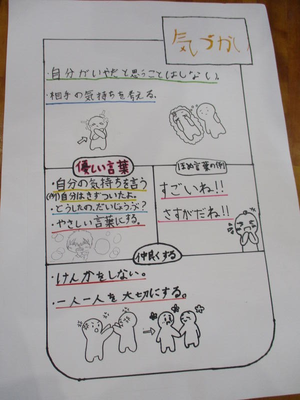 気づかい
・自分がいやだと思うことはしない。
・相手の気持ちを考える。
優しい言葉
・自分の気持ちを言う
(例)自分はきずついたよ。
・どうしたの、だいじょうぶ?
・やさしい言葉にする。
ほめ言葉の例
すごいね!!
さすがだね!!
仲良くする
・けんかをしない。
・一人一人を大切にする。